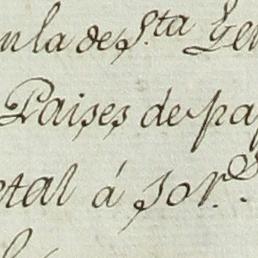 n la de S.ta Ge
Paises de pa
etal á Jor.